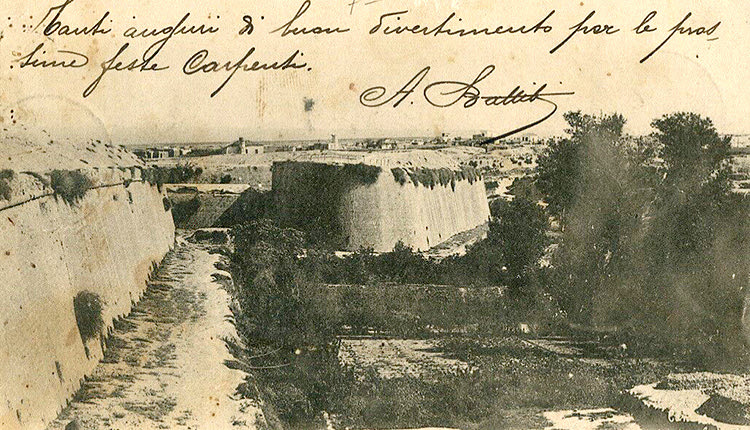 Tanti auguri di buon divertimento per le pros-
sime feste Carpenti.
A.